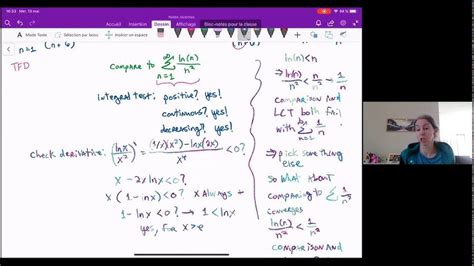 16:33 Mer. 13 mai
Dessin
Bloc-notes pour la classe
Mode Texte
Sélection par lasso
n=1 (n+6)
TFD
Compare to ∞ Σ n=1 ln(n)/n²
Integral test: positive? yes!
continuous? yes!
decreasing? yes!
Check derivative: (lnx/x²)' = (1/x)(x²)-lnx(2x)/x⁴ < 0?
x - 2x lnx < 0?
x (1 - lnx) < 0? x Always +
1 - lnx < 0? → 1 < lnx
yes, for x > e
ln(n) < n
⇒ ln(n)/n² < n/n² = 1/n
comparison and
LCT both fail
with Σ n=1 1/n
⇒ pick something
else
So what about
comparing to Σ 1/n²
converges
ln(n)/n² < 1/n²
comparison and